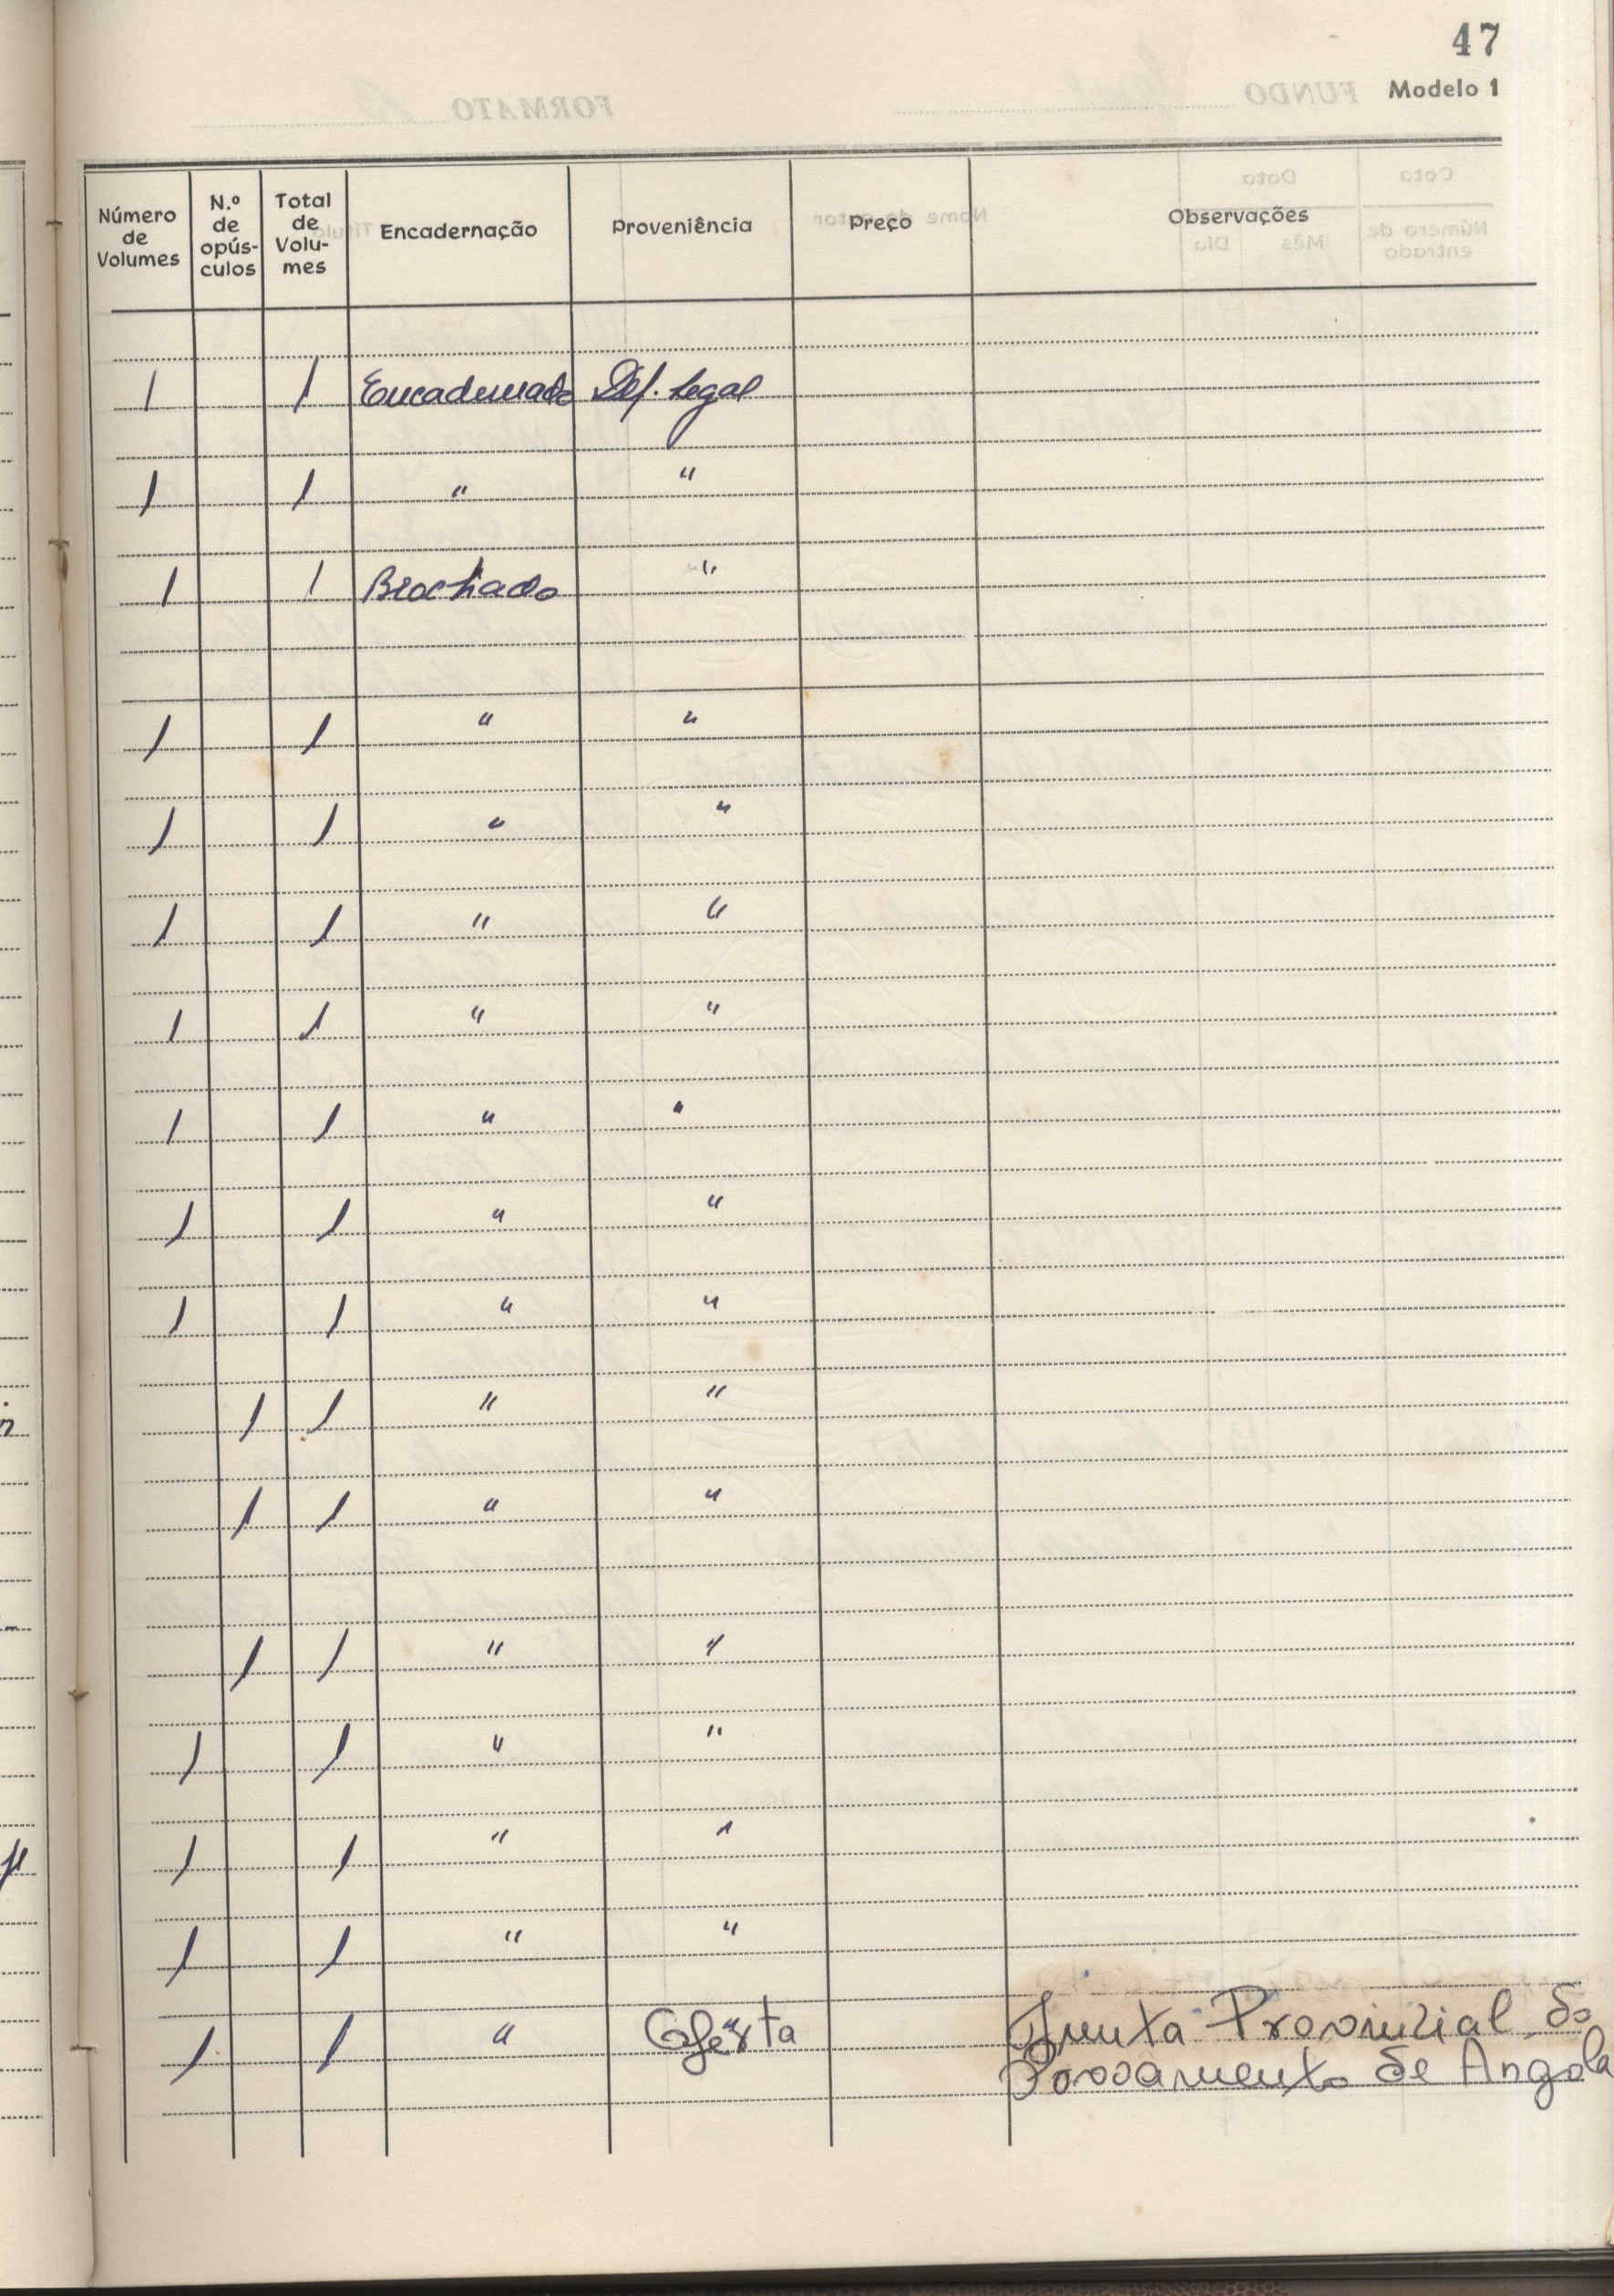 47
Modelo 1
Número de Volumes N.º de opús-culos Total de Volu-mes Encadernação Proveniência Preço Observações
1 1 Encadernado Dep. Legal
1 1 " "
1 1 Brochado "
1 1 " "
1 1 " "
1 1 " "
1 1 " "
1 1 " "
1 1 " "
1 1 " "
1 1 " "
1 1 " "
1 1 " "
1 1 " "
1 1 " "
1 1 " "
1 1 " Oferta Junta Provincial do
Povoamento de Angola